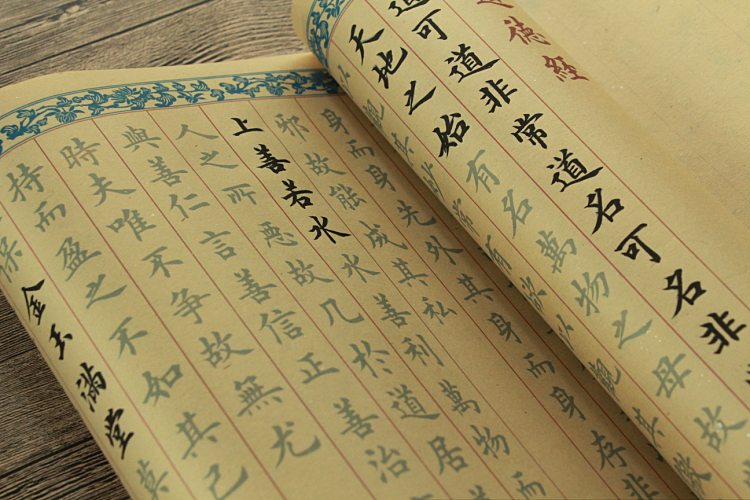 德經
可道非常道名可名非
天地之始有名萬物之母故
身而身先外其身而身存非
邪故能成其私
上善若水水善利萬物
人之所惡故几於道居
與善仁言善信正善治
時夫唯不爭故無尤
持而盈之不如其己
金玉滿堂莫